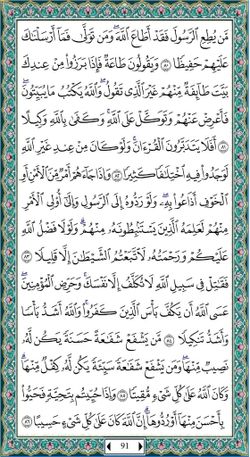 مَّن يُطِعِ ٱلرَّسُولَ فَقَدْ أَطَاعَ ٱللَّهَ ۖ وَمَن تَوَلَّىٰ فَمَآ أَرْسَلْنَٰكَ
عَلَيْهِمْ حَفِيظًا ٨٠ وَيَقُولُونَ طَاعَةٌ فَإِذَا بَرَزُوا۟ مِنْ عِندِكَ
بَيَّتَ طَآئِفَةٌ مِّنْهُمْ غَيْرَ ٱلَّذِى تَقُولُ ۖ وَٱللَّهُ يَكْتُبُ مَا يُبَيِّتُونَ ۖ
فَأَعْرِضْ عَنْهُمْ وَتَوَكَّلْ عَلَى ٱللَّهِ ۚ وَكَفَىٰ بِٱللَّهِ وَكِيلًا
٨١ أَفَلَا يَتَدَبَّرُونَ ٱلْقُرْءَانَ ۚ وَلَوْ كَانَ مِنْ عِندِ غَيْرِ ٱللَّهِ
لَوَجَدُوا۟ فِيهِ ٱخْتِلَٰفًا كَثِيرًا ٨٢ وَإِذَا جَآءَهُمْ أَمْرٌ مِّنَ ٱلْأَمْنِ أَوِ
ٱلْخَوْفِ أَذَاعُوا۟ بِهِۦ ۖ وَلَوْ رَدُّوهُ إِلَى ٱلرَّسُولِ وَإِلَىٰٓ أُو۟لِى ٱلْأَمْرِ
مِنْهُمْ لَعَلِمَهُ ٱلَّذِينَ يَسْتَنۢبِطُونَهُۥ مِنْهُمْ ۗ وَلَوْلَا فَضْلُ ٱللَّهِ
عَلَيْكُمْ وَرَحْمَتُهُۥ لَٱتَّبَعْتُمُ ٱلشَّيْطَٰنَ إِلَّا قَلِيلًا ٨٣
فَقَٰتِلْ فِى سَبِيلِ ٱللَّهِ لَا تُكَلَّفُ إِلَّا نَفْسَكَ ۚ وَحَرِّضِ ٱلْمُؤْمِنِينَ ۖ
عَسَى ٱللَّهُ أَن يَكُفَّ بَأْسَ ٱلَّذِينَ كَفَرُوا۟ ۚ وَٱللَّهُ أَشَدُّ بَأْسًا
وَأَشَدُّ تَنكِيلًا ٨٤ مَّن يَشْفَعْ شَفَٰعَةً حَسَنَةً يَكُن لَّهُۥ
نَصِيبٌ مِّنْهَا ۖ وَمَن يَشْفَعْ شَفَٰعَةً سَيِّئَةً يَكُن لَّهُۥ كِفْلٌ مِّنْهَا ۗ
وَكَانَ ٱللَّهُ عَلَىٰ كُلِّ شَىْءٍ مُّقِيتًا ٨٥ وَإِذَا حُيِّيتُم بِتَحِيَّةٍ فَحَيُّوا۟
بِأَحْسَنَ مِنْهَآ أَوْ رُدُّوهَآ ۗ إِنَّ ٱللَّهَ كَانَ عَلَىٰ كُلِّ شَىْءٍ حَسِيبًا ٨٦
91